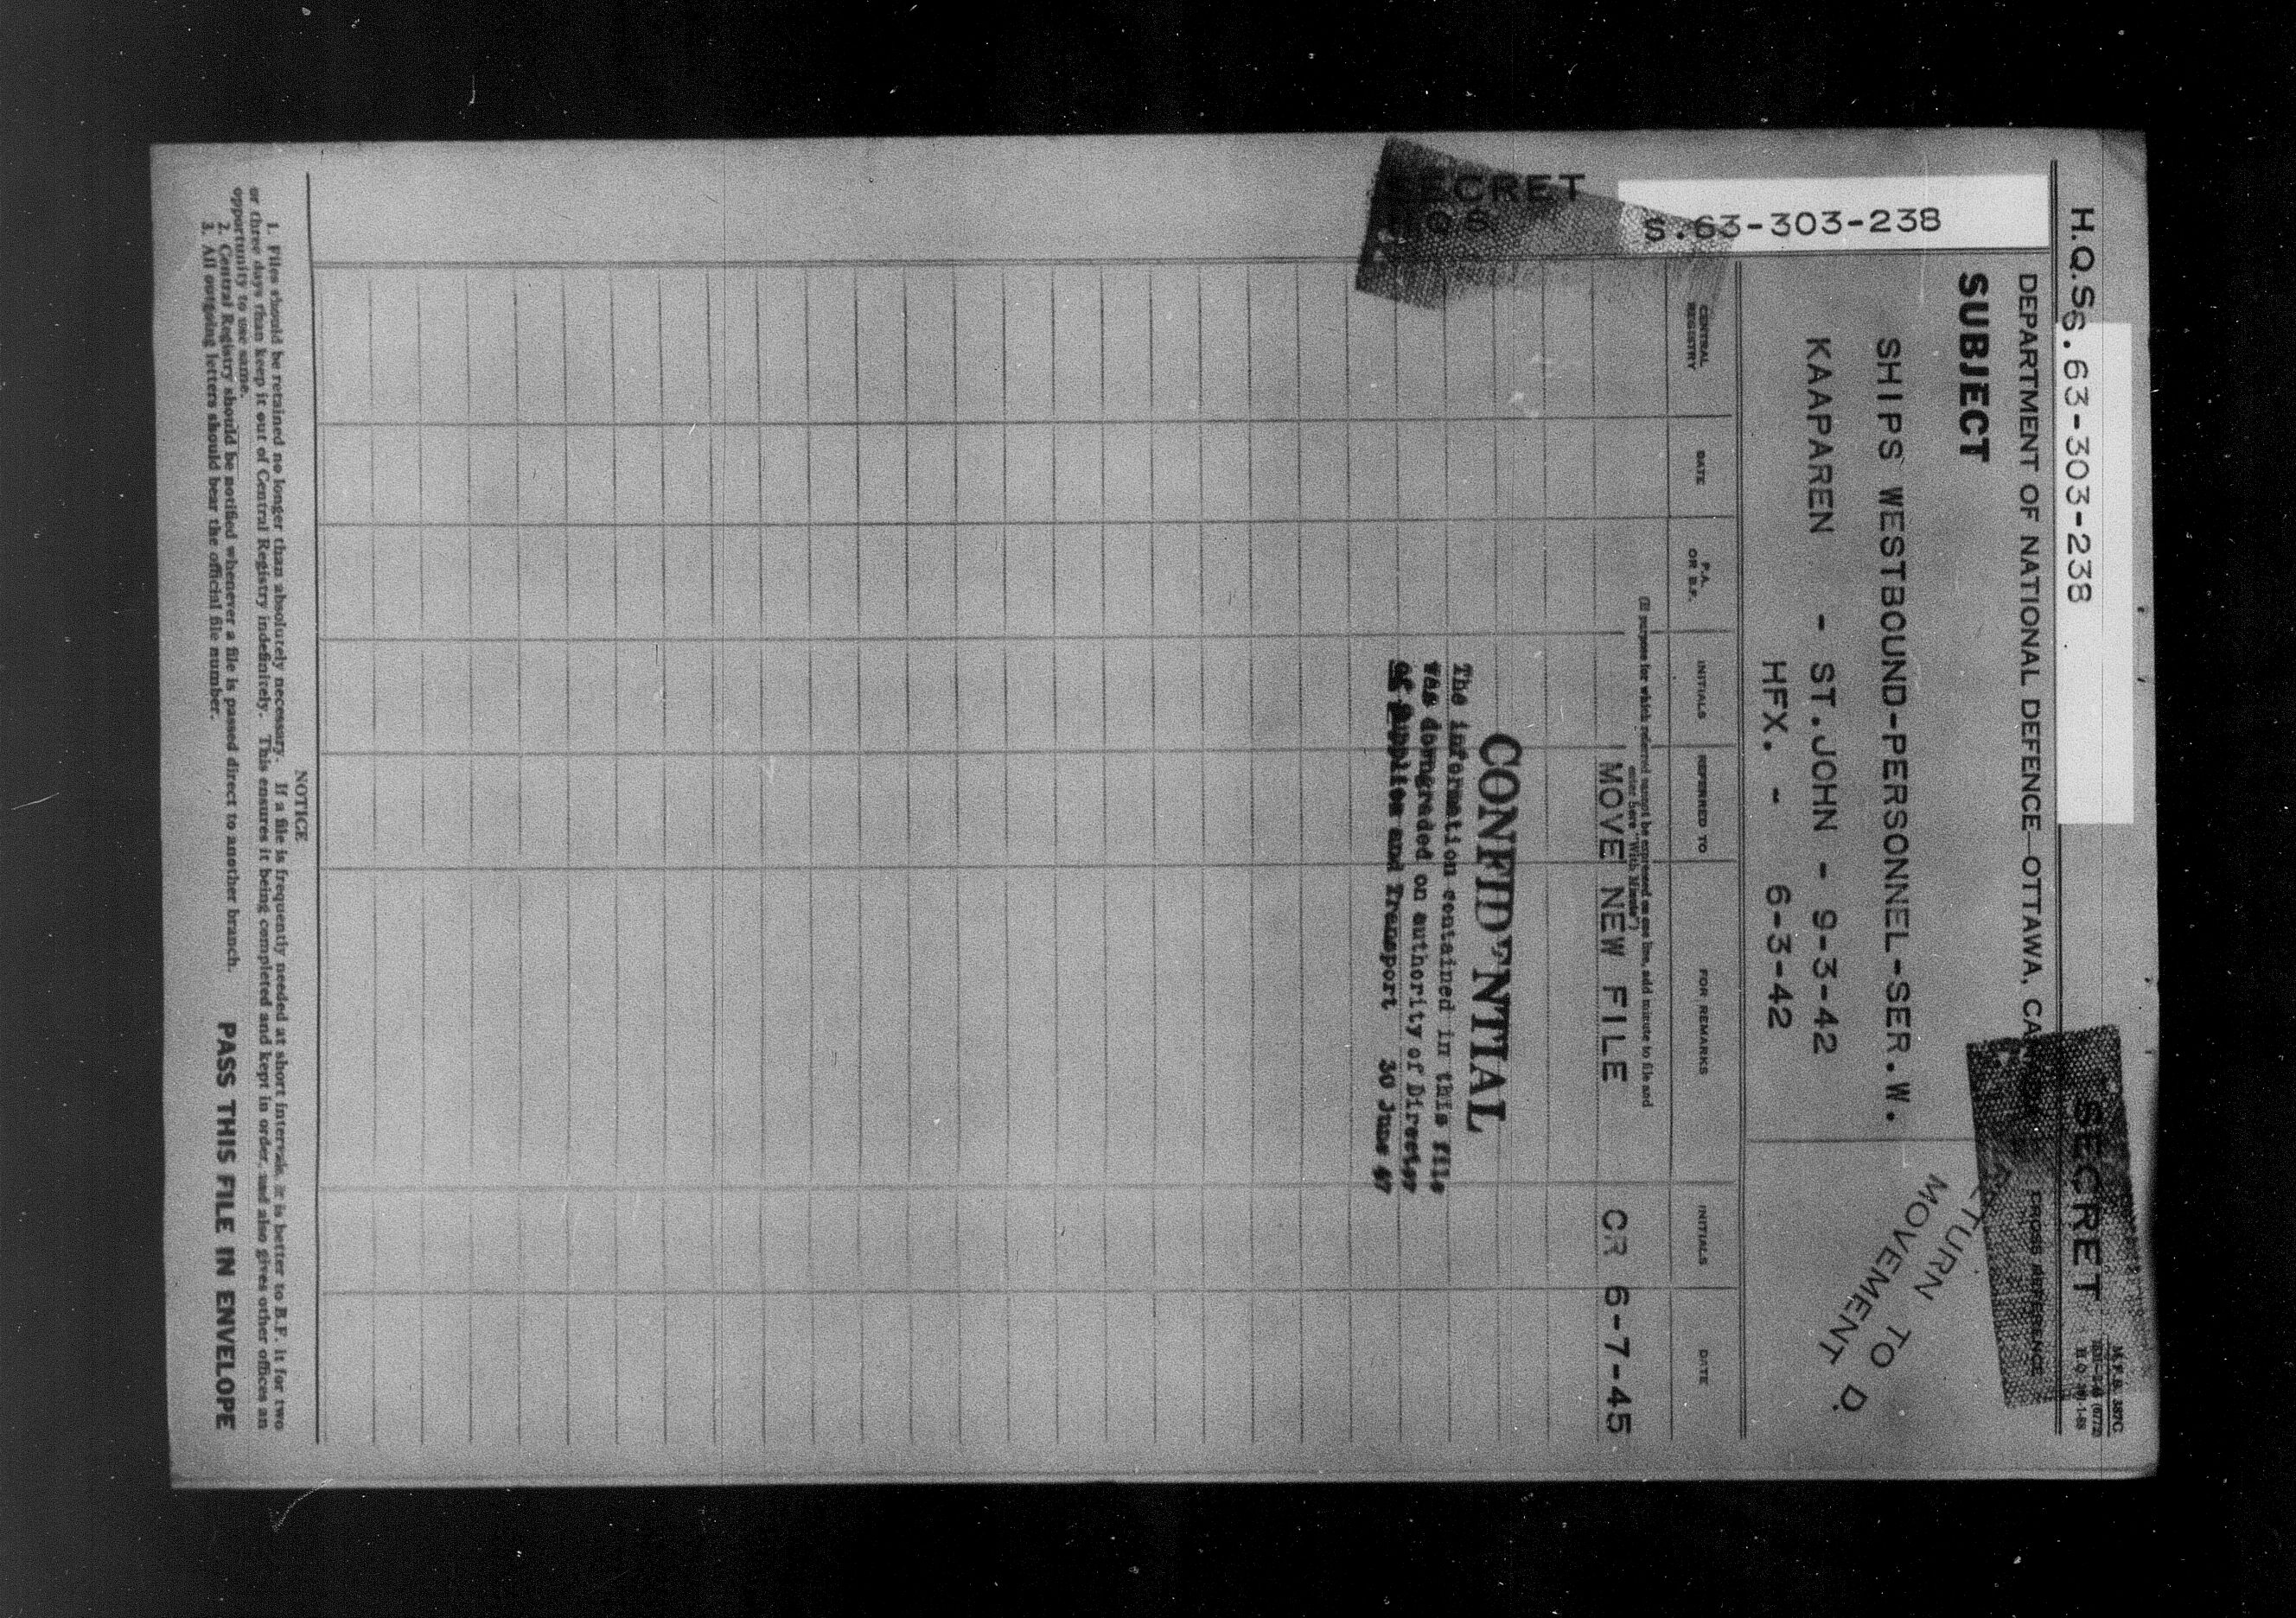 H.Q.S. S.63-303-238
SECRET
M.F.B. 387C
DEPARTMENT OF NATIONAL DEFENCE—OTTAWA,
CROSS REFERENCE
SUBJECT
SHIPS WESTBOUND-PERSONNEL-SER.W.
KAAPAREN - ST.JOHN - 9-3-42
HFX. - 6-3-42
TURN TO
MOVEMENT D.
S.63-303-238
SECRET
CENTRAL REGISTRY
DATE
P.A. OR B.F.
INITIALS
REFERRED TO
FOR REMARKS
INITIALS
DATE
(If purpose for which referred cannot be expressed on one line, add minute to file and
enter here "With Minute")
MOVE NEW FILE CR 6-7-45
CONFIDENTIAL
The information contained in this file
was downgraded on authority of Director
of Supplies and Transport 30 June 47
NOTICE
1. Files should be retained no longer than absolutely necessary. If a file is frequently needed at short intervals, it is better to B.F. it for two
or three days than keep it out of Central Registry indefinitely. This ensures it being completed and kept in order, and also gives other offices an
opportunity to use same.
2. Central Registry should be notified whenever a file is passed direct to another branch.
3. All outgoing letters should bear the official file number.
PASS THIS FILE IN ENVELOPE